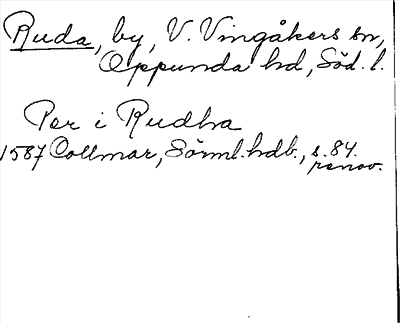 Ruda, by, V. Vingåkers sn,
Oppunda hd, Söd. l.
Per i Rudha
1587 Collmar, Sörml. hdb., s. 84.
renov.